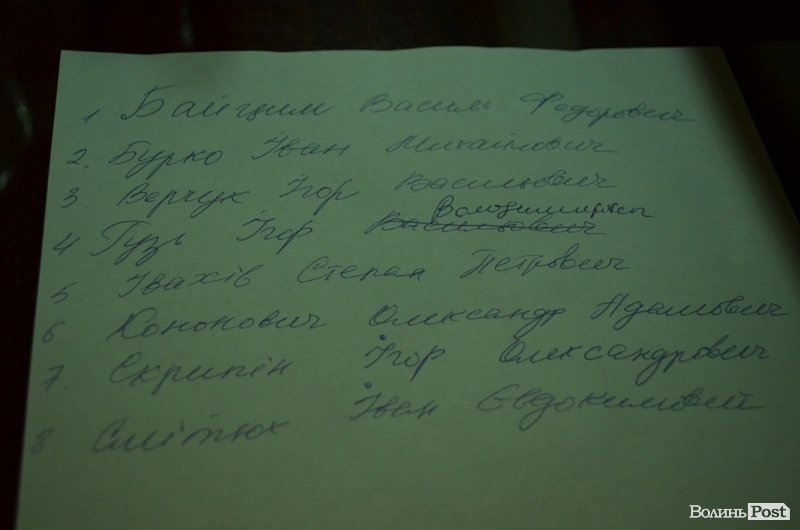 1 Байцим Василь Федорович
2. Бурко Іван Михайлович
3. Верчук Ігор Васильович
Володимирович
4 Гузь Ігор. Васильович
5. Івахів Степан Петрович
6 Кононович Олександр Адамович
7. Скрипін Ігор Олександрович
8. Смітюх Іван Євдокимовий
ВолиньPost